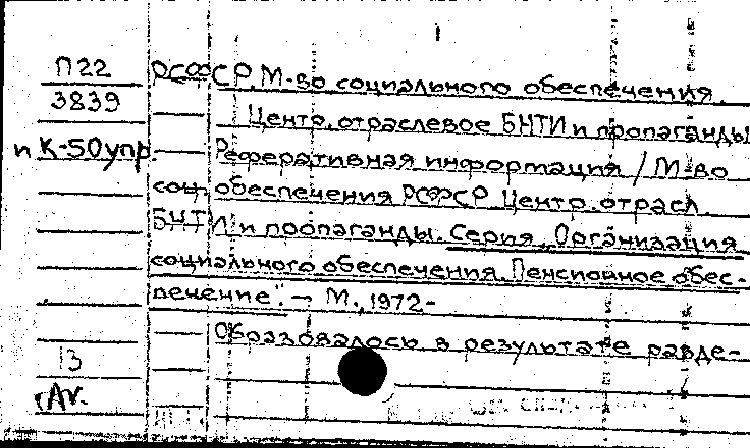 П22 РСФСР. М-во социального обеспечения.
3839 Центр. отраслевое БНТИ и пропаганды
и К-50упр. Реферативная информация / М-во
соц. обеспечения РСФСР. Центр. отрасл.
БНТИ и пропаганды. Серия „Организация
социального обеспечения. Пенсионное обес-
печение". — М., 1972-
Образовалось в результате разде-
13